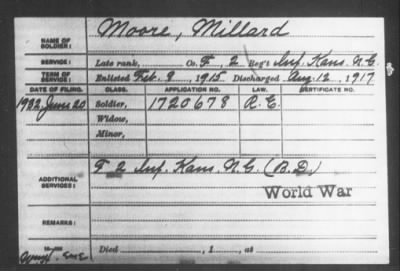 NAME OF SOLDIER: Moore, Millard
SERVICE: Late rank, Co. F, 2 Reg't Inf. Kans. N.G.
TERM OF SERVICE: Enlisted Feb. 9, 1915 Discharged Aug. 12, 1917
DATE OF FILING. CLASS. APPLICATION NO. LAW. CERTIFICATE NO.
1932, June 20 Soldier, 1720678 R.E.
Widow,
Minor,
ADDITIONAL SERVICES: F 2 Inf. Kans. N.G. (B.D.)
World War
REMARKS:
Died , 1 , at